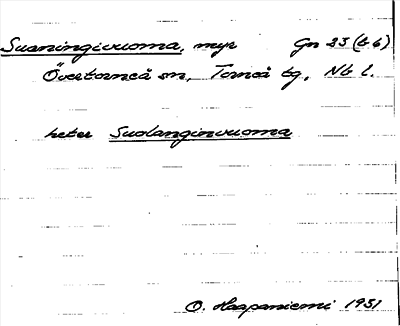 Suaningivuoma, myr Gn 23 (b 6)
Övertorneå sn, Torneå tg, Nb l.
heter Suolanginvuoma
O. Haapaniemi 1931